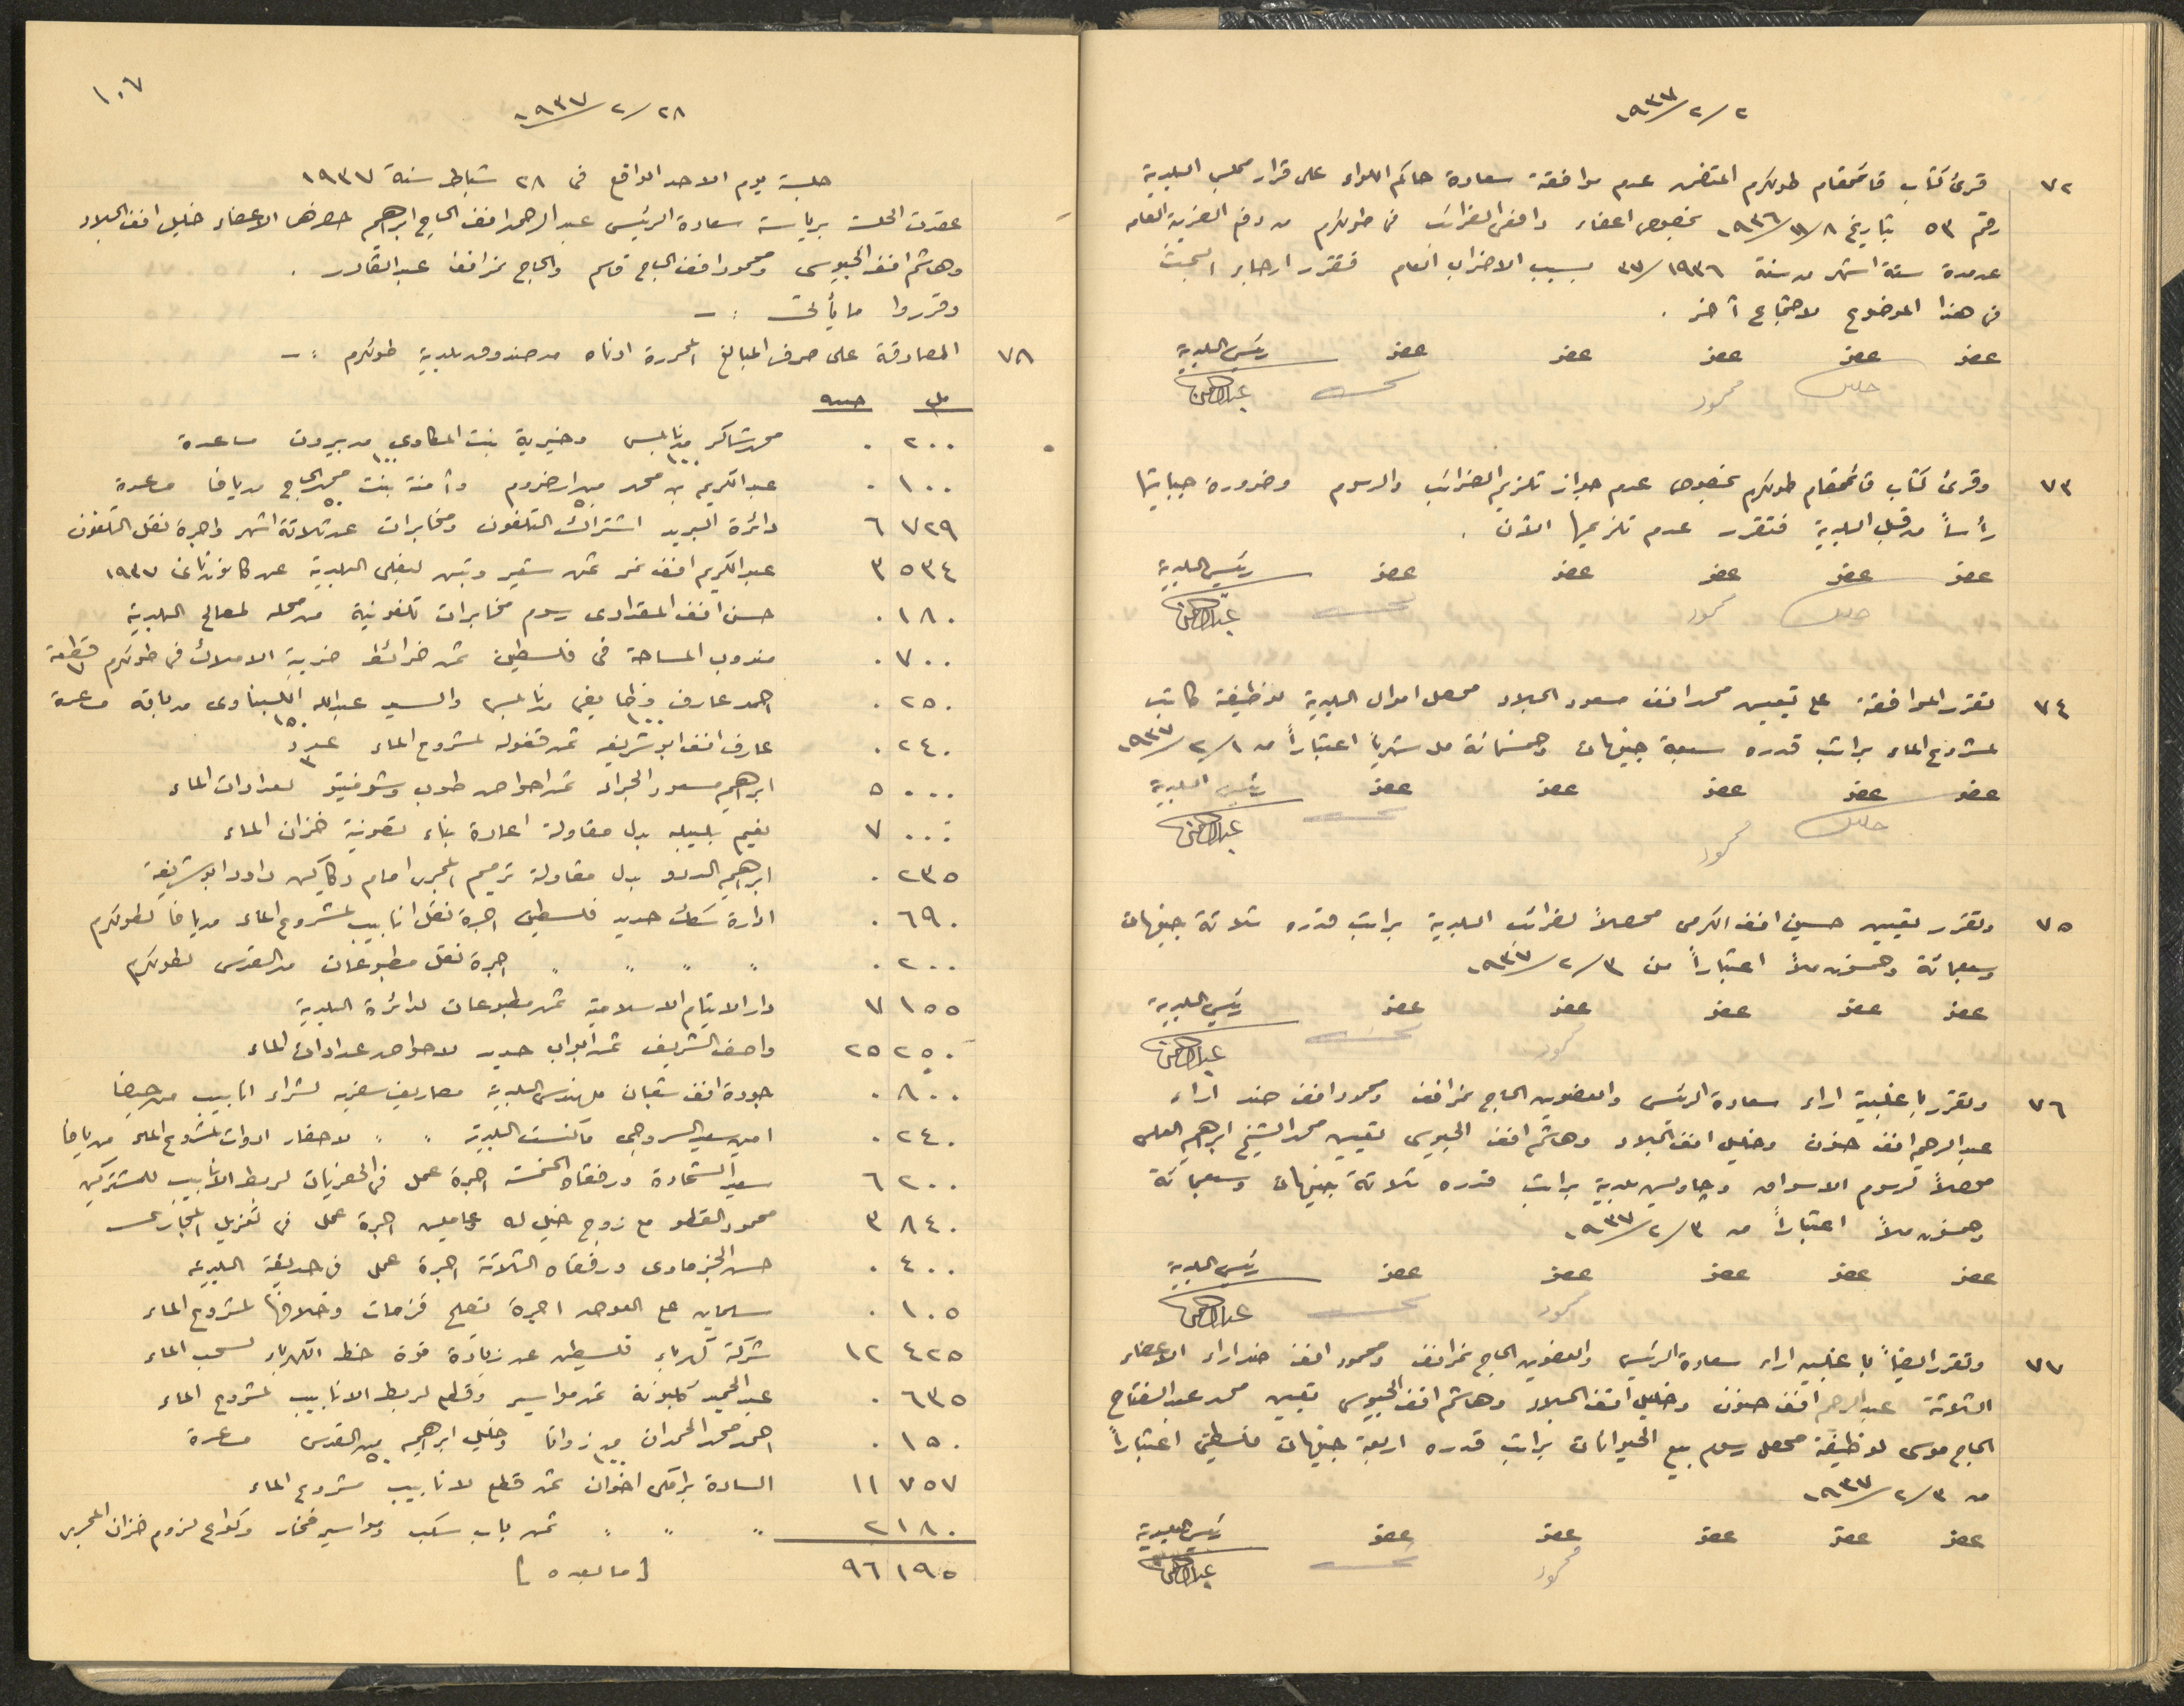 ٢/٢/١٩٣٧
٧٢ قرئ كتاب قائمقام طولكرم المتضمن عدم موافقة سعادة حاكم اللواء على قرار مجلس البلدية
رقم ٥٣ بتاريخ ٨/١١/١٩٣٦ بخصوص اعفاء دافعي الضرائب في طولكرم من دفع الضريبة العامه
عن مدة ستة اشهر من سنة ١٩٣٦/٣٧ بسبب الاضراب العام فتقرر ارجاء البحث
في هذا الموضوع لاجتماع آخر .
عضو عضو عضو عضو عضو رئيس البلدية
محمود
٧٣ وقرئ كتاب قائمقام طولكرم بخصوص عدم جواز تلزيم الضرائب والرسوم وضرورة جبايتها
رأساً من قبل البلدية فتقرر عدم تلزيمها الآن .
عضو عضو عضو عضو عضو رئيس البلدية
محمود
٧٤ تقرر الموافقة على تعيين محمد افندي مسعود الجلاد محصل اموال البلدية لوظيفة كاتب
لمشروع الماء براتب قدره سبعة جنيهات وخمسمائة مل شهرياً اعتباراً من ١/٢/١٩٣٧
عضو عضو عضو عضو عضو رئيس البلدية
محمود
٧٥ وتقرر تعيين حسين افندي الكرمي محصلاً لضرائب البلدية براتب قدره ثلاثة جنيهات
وسبعمائة وخمسون ملاً اعتباراً من ٣/٢/١٩٣٧
عضو عضو عضو عضو عضو رئيس البلدية
محمود
٧٦ وتقرر باغلبية اراء سعادة الرئيس والعضوين الحاج نمر افندي ومحمود افندي ضد اراء
عبد الرحيم افندي حنون وخليل افندي الجلاد وهاشم افندي الجيوسي تعيين محمد الشيخ ابراهيم العلي
محصلاً لرسوم الاسواق وچاويش بلدية براتب قدره ثلاثة جنيهات وسبعمائة
وخمسون ملاً اعتباراً من ٣/٢/١٩٣٧
عضو عضو عضو عضو عضو رئيس البلدية
محمود
٧٧ وتقرر ايضاً باغلبية اراء سعادة الرئيس والعضوين الحاج نمر افندي ومحمود افندي ضد اراء الاعضاء
الثلاثة عبد الرحيم افندي حنون وخليل افندي الجلاد وهاشم افندي الجيوسي تعيين محمد عبد الفتاح
الحاج موسى لوظيفة محصل رسوم بيع الحيوانات براتب قدره اربعة جنيهات فلسطيني اعتباراً
من ٣/٢/١٩٣٧
عضو عضو عضو عضو عضو رئيس البلدية
محمود
١٠٧
٢٨/٢/١٩٣٧
جلسة يوم الاحد الواقع في ٢٨ شباط سنة ١٩٣٧
عقدت الجلسة برياسة سعادة الرئيس عبد الرحمن افندي الحاج ابراهيم حضرها الاعضاء خليل افندي الجلاد
وهاشم افندي الجيوسي ومحمود افندي الحاج قاسم والحاج نمر افندي عبد القادر .
وقرروا ما يأتي :-
٧٨ المصادقة على صرف المبالغ المحررة ادناه من صندوق بلدية طولكرم :-
مل جنيه
٢٠٠ ٠ محمد شاكر من نابلس ١٠٠ وخيرية بنت المكاوي من بيروت ١٠٠ مساعدة
١٠٠ ٠ عبد الكريم بن محمد من ارضروم ٥٠ وآمنة بنت محمد الحاج من يافا ٥٠ مساعدة
٧٢٩ ٦ دائرة البريد اشتراك التلفون ومخابرات عن ثلاثة اشهر واجرة نقل التلفون
٥٣٤ ٣ عبد الكريم افندي نمر ثمن شعير وتبن لبغلي البلدية عن كانون ثاني ١٩٣٧
١٨٠ ٠ حسن افندي المقدادي رسوم مخابرات تلفونية من محله لمصالح البلدية
٧٠٠ ٠ مندوب المساحة في فلسطين ثمن خرائط ضريبة الاملاك في طولكرم قطعة ٧
٢٥٠ ٠ احمد عارف من نابلس ١٠٠ والسيد عبد الله من باقه ١٥٠ مساعدة
٢٤٠ ٠ عارف افندي ابو شريفه ثمن قفوله لمشروع الماء عدد ٣
٠٠٠ ٥ ابراهيم مسعود ثمن احواض طوب لعدادات الماء
٠٠٠ ٧ نعيم بلبيله بدل مقاولة اعادة بناء خزان الماء
٢٣٥ ٠ ابراهيم بدل مقاولة ترميم المجرى امام دكاكين داود ابو شريفة
٦٩٠ ٠ ادارة سكك حديد فلسطين اجرة نقل انابيب لمشروع الماء من يافا لطولكرم
٢٠٠ ٠ " " " " اجرة نقل مطبوعات من القدس لطولكرم
١٥٥ ٧ دار الايتام الاسلامية ثمن مطبوعات لدائرة البلدية
٢٥٠ ٢٥ واصف الشريف ثمن ابواب حديد لاحواض عدادات الماء
٨٠٠ ٠ جودة افندي شعبان مهندس البلدية مصاريف سفريه لشراء انابيب من حيفا
٢٤٠ ٠ امين سعيد السروجي البلدية " " لاحضار ادوات لمشروع الماء من يافا
٢٠٠ ٦ سعيد الشحادة ورفقاه الخمسة اجرة عمل في الحفريات لربط الانابيب للمشتركين
٨٤٠ ٣ محمود القطو مع زوج خيل له وعاملين اجرة عمل في تعزيل المجاري
٤٠٠ ٠ حسن ورفقاه الثلاثة اجرة عمل في حديقة البلديه
١٠٥ ٠ سليمان اجرة تصليح قزمات وخلافها لمشروع الماء
٤٢٥ ١٢ شركة كهرباء فلسطين عن زيادة قوة خط الكهرباء لسحب الماء
٦٣٥ ٠ عبد الحميد ثمن مواسير وقطع لربط الانابيب لمشروع الماء
١٥٠ ٠ احمد محمد الحمدان من ١٠٠ وخليل ابراهيم من القدس ٥٠ مساعدة
٧٥٧ ١١ السادة اخوان ثمن قطع لانابيب مشروع الماء
١٨٠ ٢ " " " ثمن باب سكب ومواسير فخار وكواع لزوم خزان المجرى
١٩٥ ٩٦ [ ما بعده ]